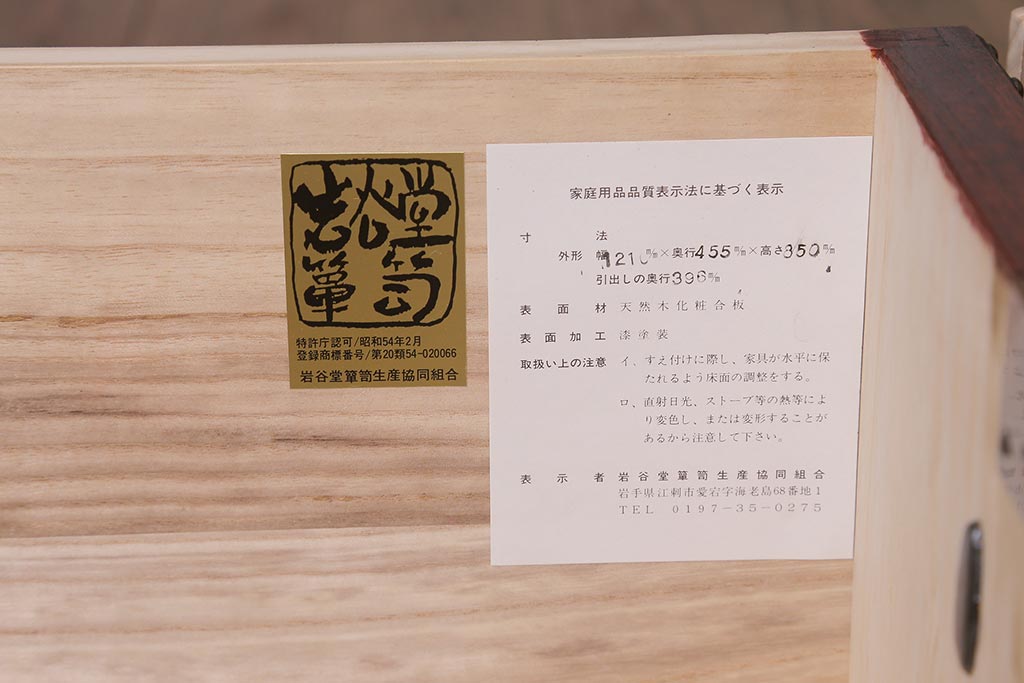 岩谷堂
簞笥
特許庁認可/昭和54年2月
登録商標番号/第20類54-020066
岩谷堂簞笥生産協同組合
家庭用品品質表示法に基づく表示
寸法
外形 幅1210m/m×奥行455m/m×高さ350m/m
引出しの奥行396m/m
表面材 天然木化粧合板
表面加工 漆塗装
取扱い上の注意 イ、すえ付けに際し、家具が水平に保
たれるよう床面の調整をする。
ロ、直射日光、ストーブ等の熱等によ
り変色し、または変形することが
あるから注意して下さい。
表示者 岩谷堂簞笥生産協同組合
岩手県江刺市愛宕字海老島68番地1
TEL 0197-35-0275